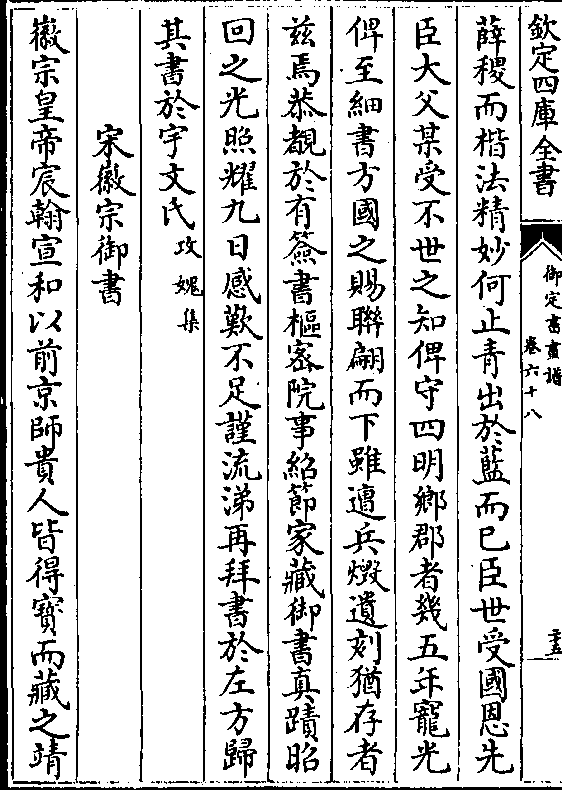 欽定四庫全書
御定書畫譜
卷六十八
二十五
薛稷而楷法精妙何止青出於藍而已臣世受國恩先
臣大父某受不世之知俾守四明鄉郡者幾五年寵光
俾至細書方國之賜聯翩而下雖遭兵燬遺刻猶存者
兹焉恭覩於有簽書樞密院事紹節家藏御書真蹟昭
回之光照耀九日感歎不足謹流涕再拜書於左方歸
其書於宇文氏攻媿集
宋徽宗御書
徽宗皇帝宸翰宣和以前京師貴人皆得寶而藏之靖